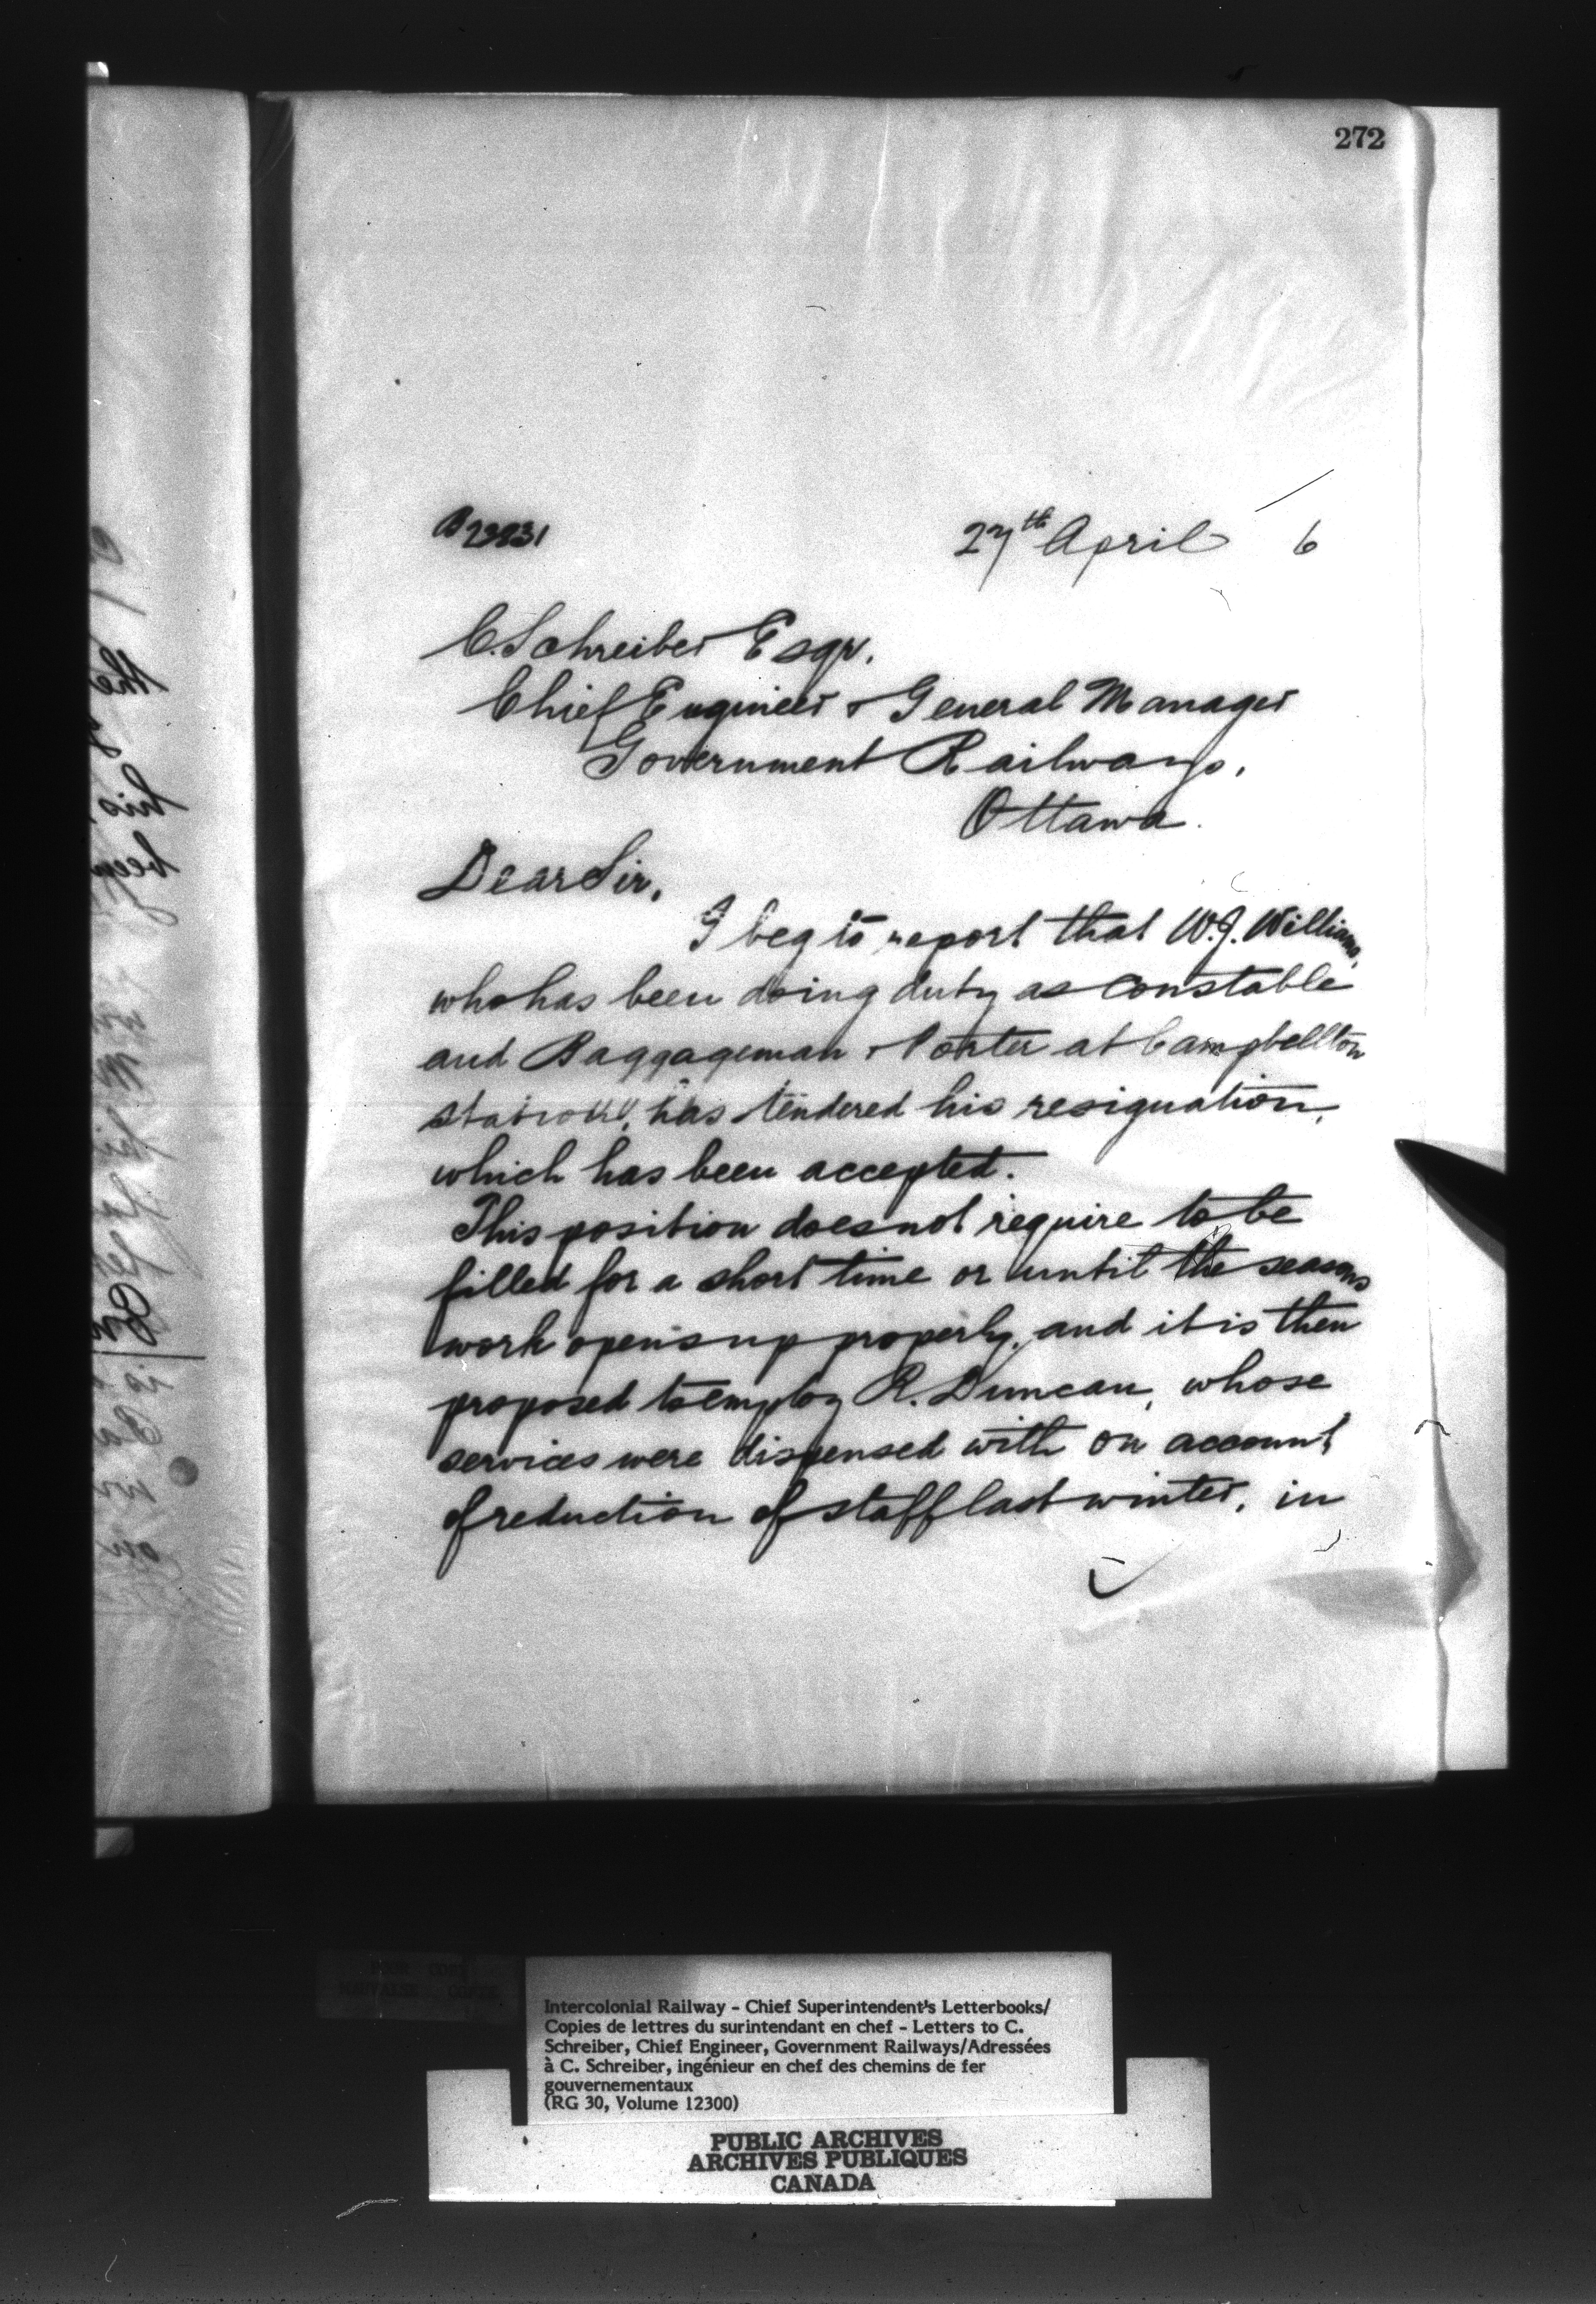 272
27th April 6
C. Schreiber Esqr.
Chief Engineer & General Manager
Government Railways,
Ottawa.
Dear Sir,
I beg to report that W.J. Williams,
who has been doing duty as Constable
and Baggageman & Porter at Campbellton
station, has tendered his resignation,
which has been accepted.
This position does not require to be
filled for a short time or until the seasons
work opens up properly, and it is then
proposed to employ R. Duncan, whose
services were dispensed with on account
of reduction of staff last winter, in
Intercolonial Railway - Chief Superintendent's Letterbooks/
Copies de lettres du surintendant en chef - Letters to C.
Schreiber, Chief Engineer, Government Railways/Adressées
à C. Schreiber, ingénieur en chef des chemins de fer
gouvernementaux
(RG 30, Volume 12300)
PUBLIC ARCHIVES
ARCHIVES PUBLIQUES
CANADA